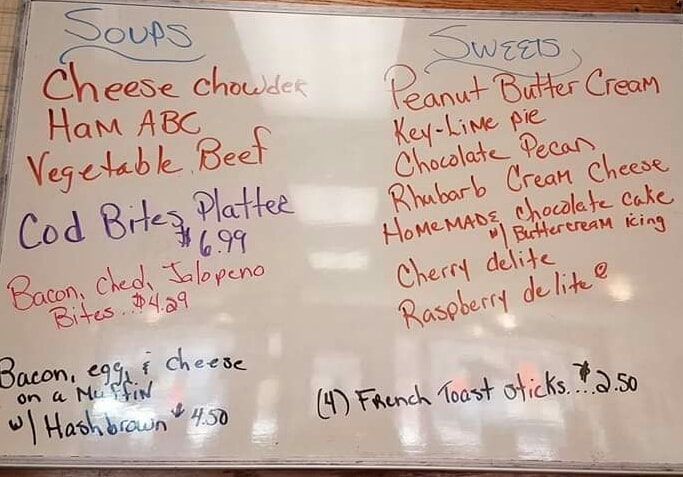 Soups
Cheese chowder
Ham ABC
Vegetable Beef
Cod Bites Plattee
$6.99
Bacon, ched, Jalopeno
Bites...$4.29
Bacon, egg, & cheese
on a Muffin
w/ Hashbrown $4.50
Sweets
Peanut Butter Cream
Key-Lime pie
Chocolate Pecan
Rhubarb Cream Cheese
Homemade chocolate cake
w/ Buttercream icing
Cherry delite
Raspberry delite
(4) French Toast sticks....$2.50